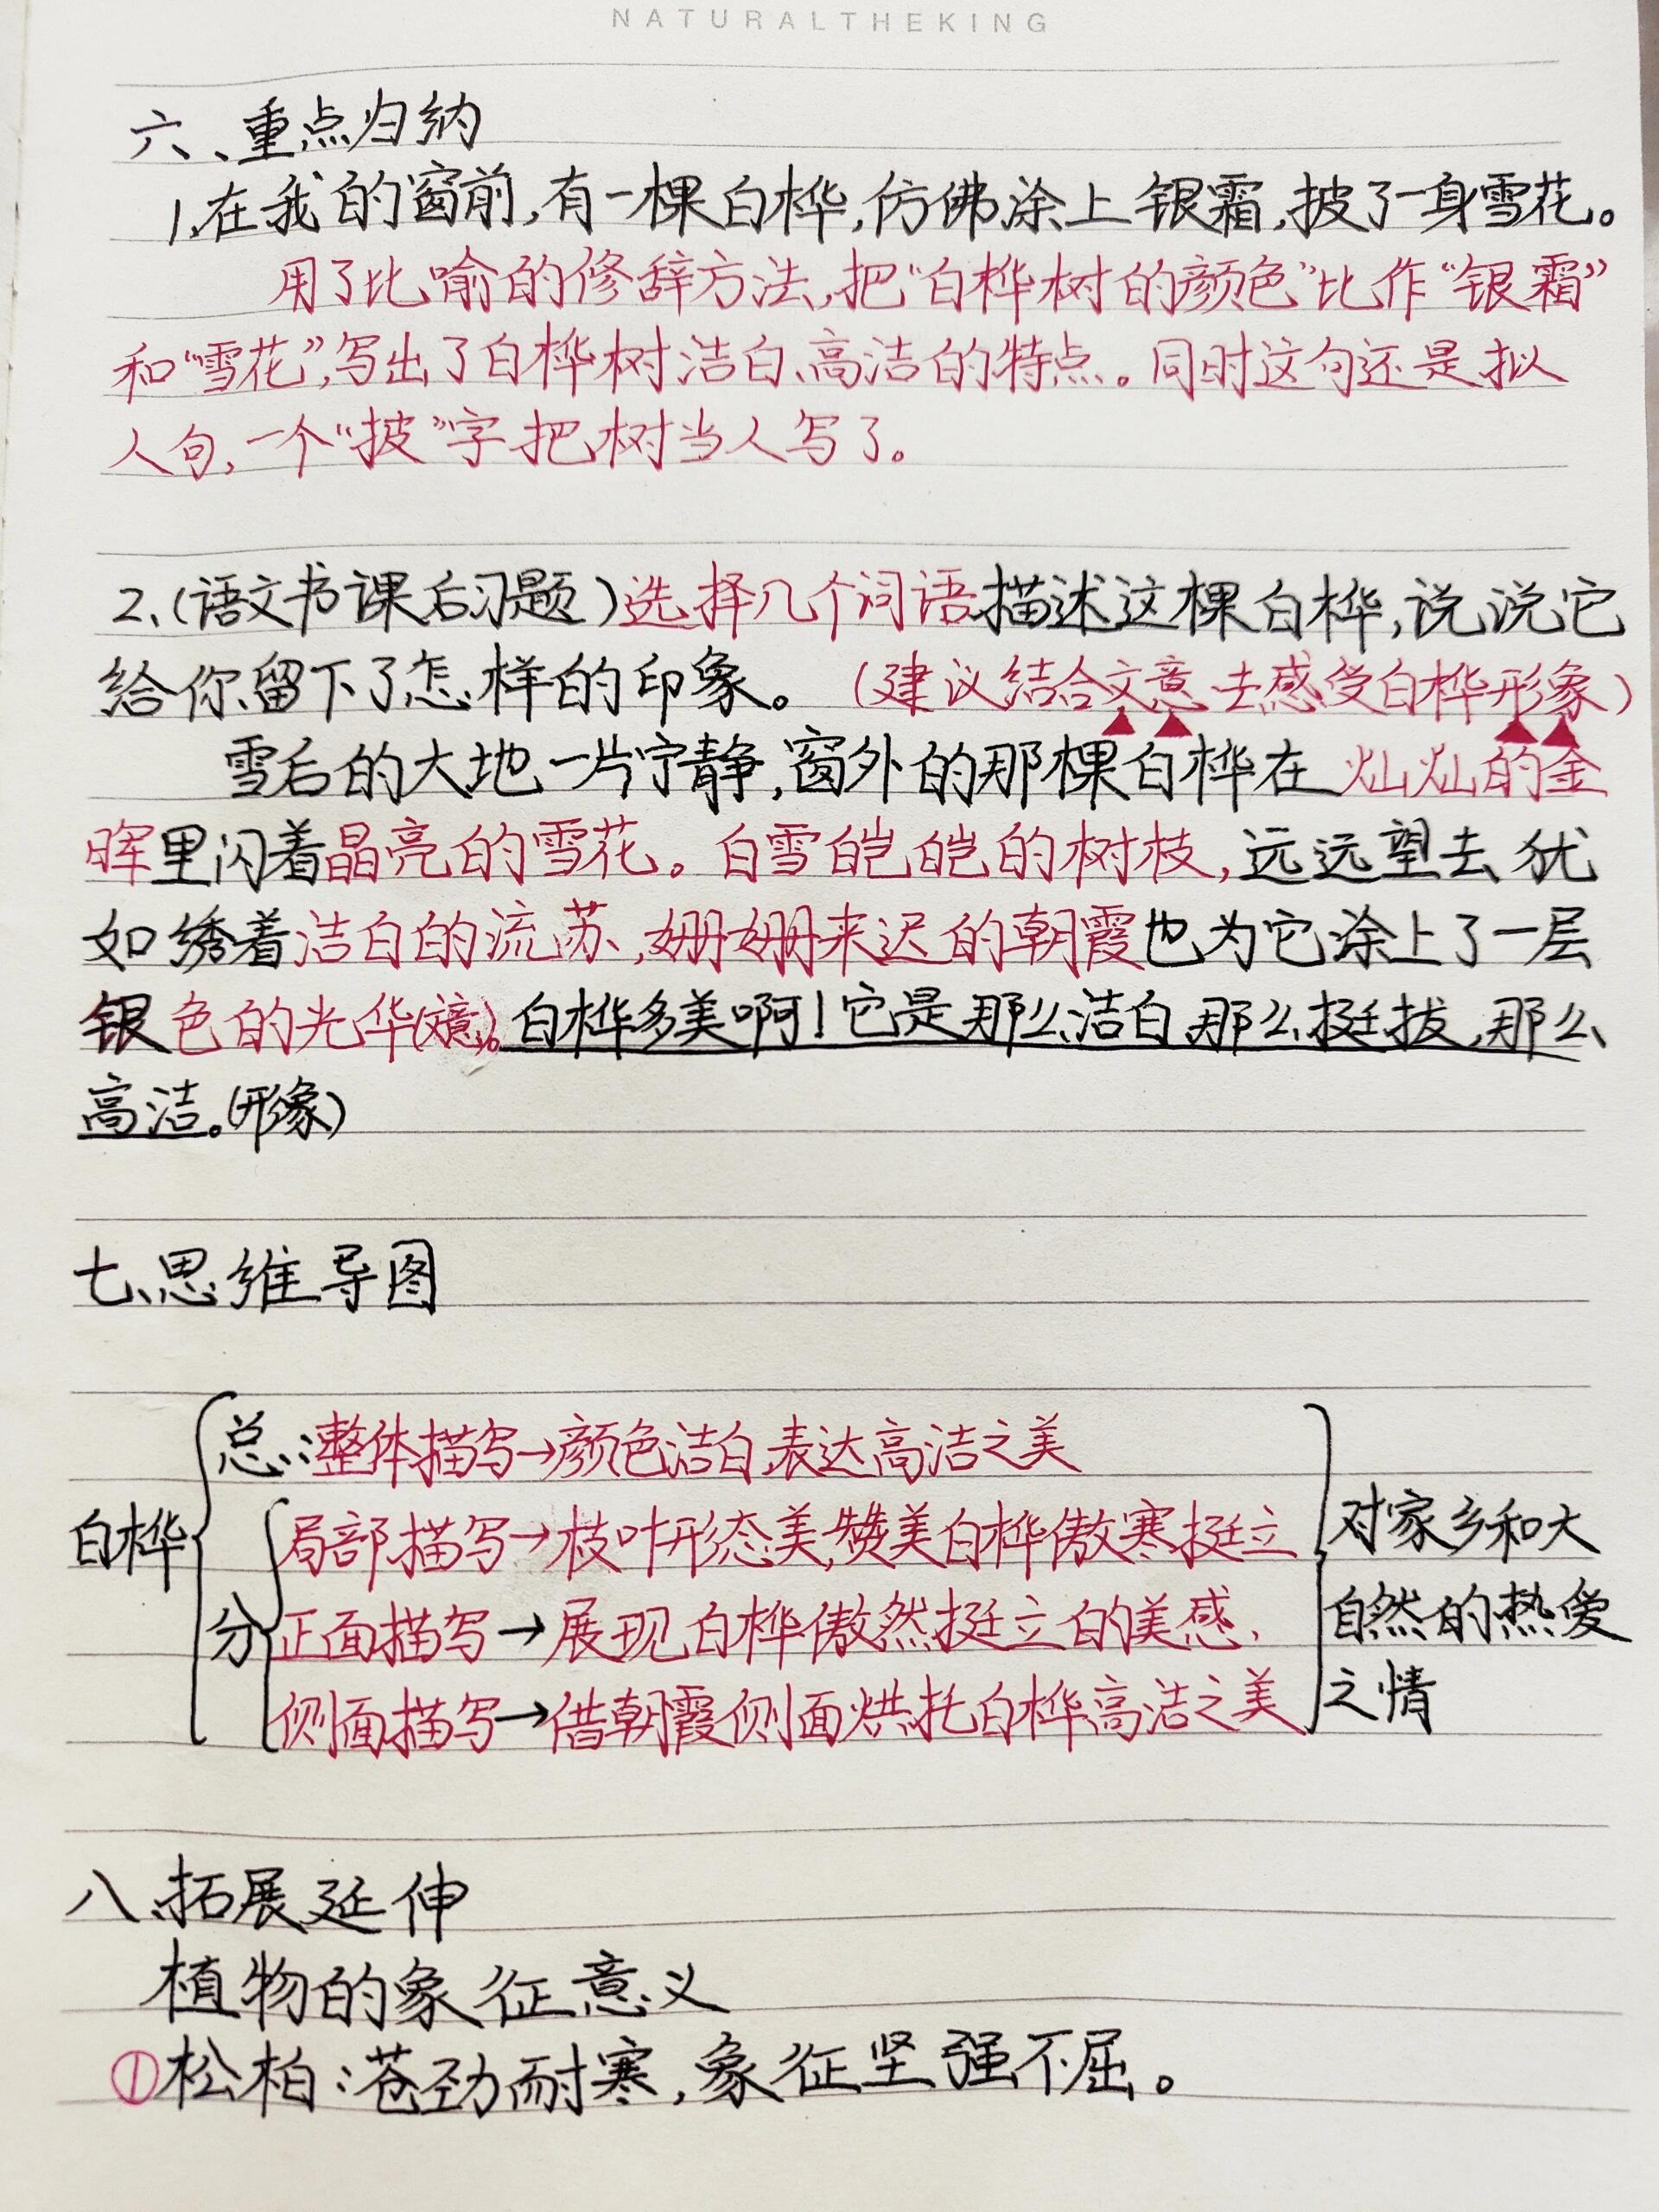 NATURALTHEKING
六、重点归纳
1.在我的窗前,有一棵白桦,仿佛涂上银霜,披了一身雪花。
用了比喻的修辞方法,把“白桦树的颜色”比作“银霜”
和“雪花”,写出了白桦树洁白、高洁的特点。同时这句还是拟
人句,一个“披”字把树当人写了。
2、(语文书课后习题)选择几个词语描述这棵白桦,说说它
给你留下了怎样的印象。(建议结合文意去感受白桦形象)
雪后的大地一片宁静,窗外的那棵白桦在灿灿的金
晖里闪着晶亮的雪花。白雪皑皑的树枝,远远望去犹
如绣着洁白的流苏,姗姗来迟的朝霞也为它涂上了一层
银色的光华(文意)。白桦多美啊!它是那么洁白,那么挺拔,那么
高洁。(形象)
七、思维导图
总:整体描写→颜色洁白,表达高洁之美
白桦
分
局部描写→枝叶形态美,赞美白桦傲寒挺立
正面描写→展现白桦傲然挺立的美感,
侧面描写→借朝霞侧面烘托白桦高洁之美
对家乡和大
自然的热爱
之情
八、拓展延伸
植物的象征意义
①松柏:苍劲耐寒,象征坚强不屈。